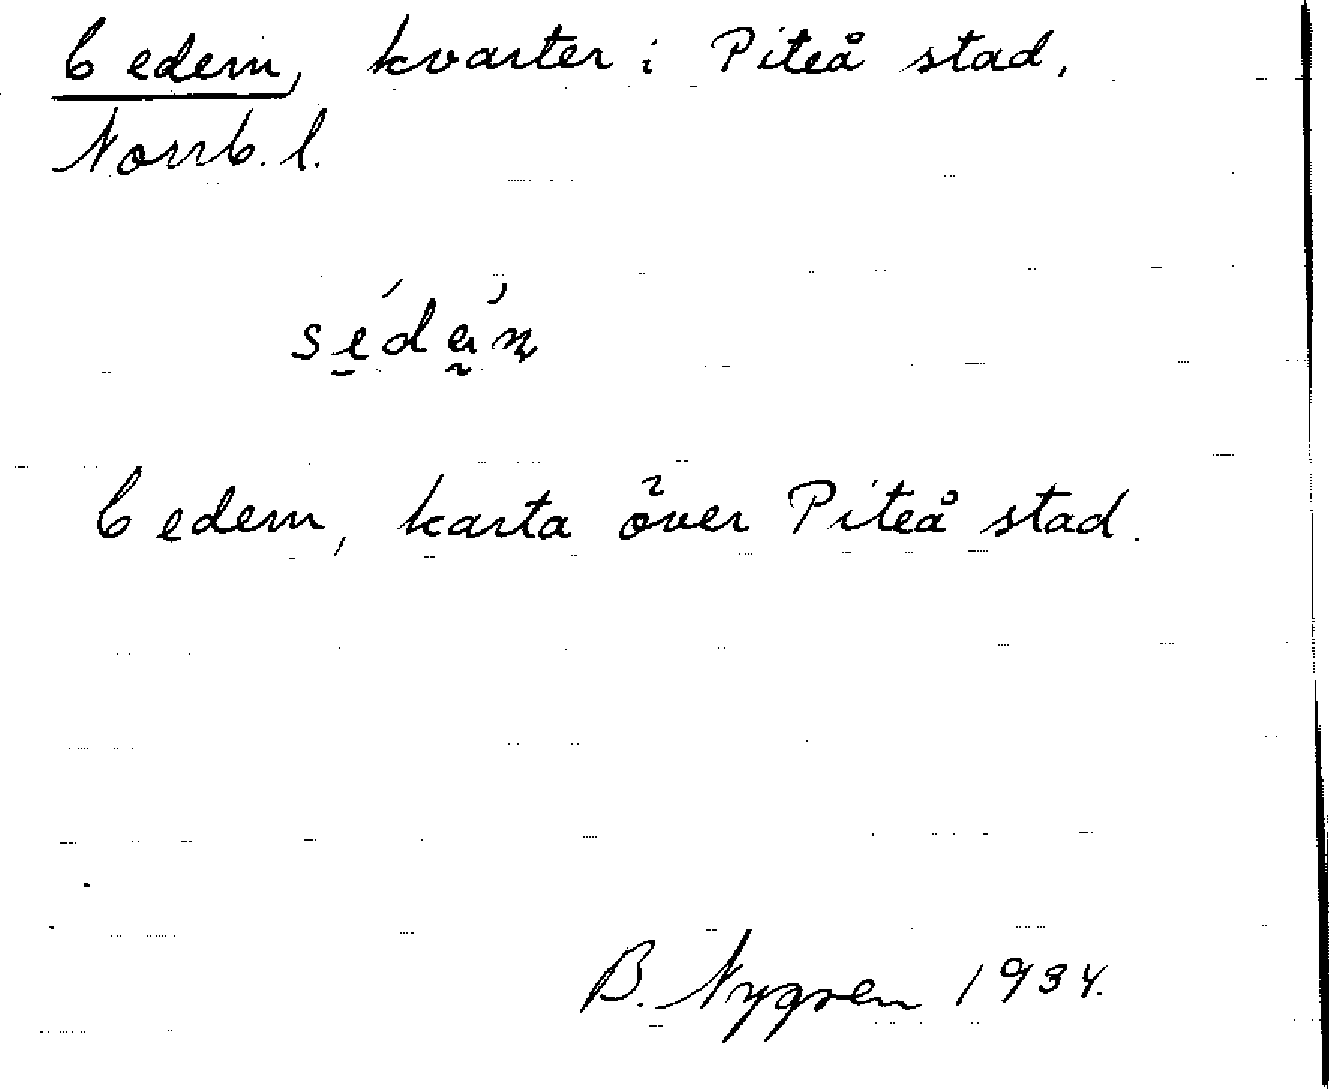 Cedern, kvarter i Piteå stad,
Norrb. l.
Cedern, karta över Piteå stad.
B. Nygren 1934.